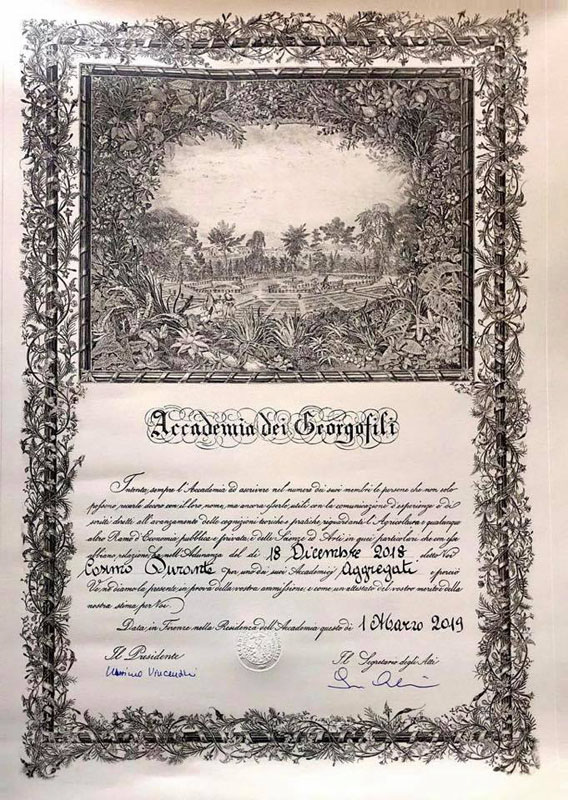 Accademia dei Georgofili
Intenta sempre l'Accademia ad ascrivere nel numero dei suoi membri le persone che non solo
possono recarle decoro con il loro nome, ma ancora esserle utili con la comunicazione d'esperienze e di
scritti diretti all'avanzamento delle cognizioni teoriche e pratiche, riguardanti l'Agricoltura e qualunque
altro Ramo d'Economia pubblica e privata, e delle Scienze ed Arti in quei particolari che con essa
abbiano relazione nell'Adunanza del dì 18 Dicembre 2018 elesse Voi
Cosimo Durante per uno dei suoi Accademici Aggregati e perciò
Ve ne diamo la presente in prova della vostra ammissione, e come un attestato del vostro merito e della
nostra stima per Voi.
Data in Firenze nella Residenza dell'Accademia questo dì 1 Marzo 2019
Il Presidente
Il Segretario degli Atti